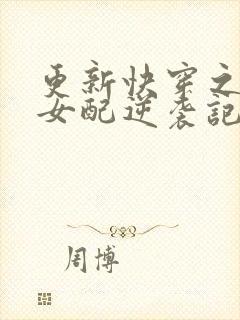 更新快穿之
女配逆袭記
周博